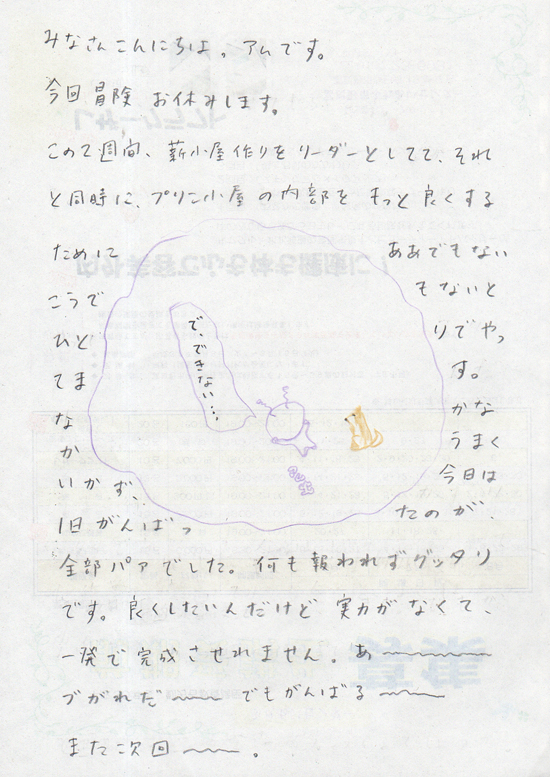 みなさんこんにちは。アムです。
今回冒険 お休みします。
この2週間、薪小屋作りをリーダーとしてて、それ
と同時に、プリン小屋の内部を もっと良くする
ために ああでもない
こうで もないと
ひと りでやっ
てま す。
な かな
か うまく
いかず、 今日は
1日がんばっ たのが、
で、できない…
全部パアでした。何も報われずグッタリ
です。良くしたいんだけど 実力がなくて、
一発で完成させれません。あ〜
づがれだ〜 でもがんばる〜
また次回〜。